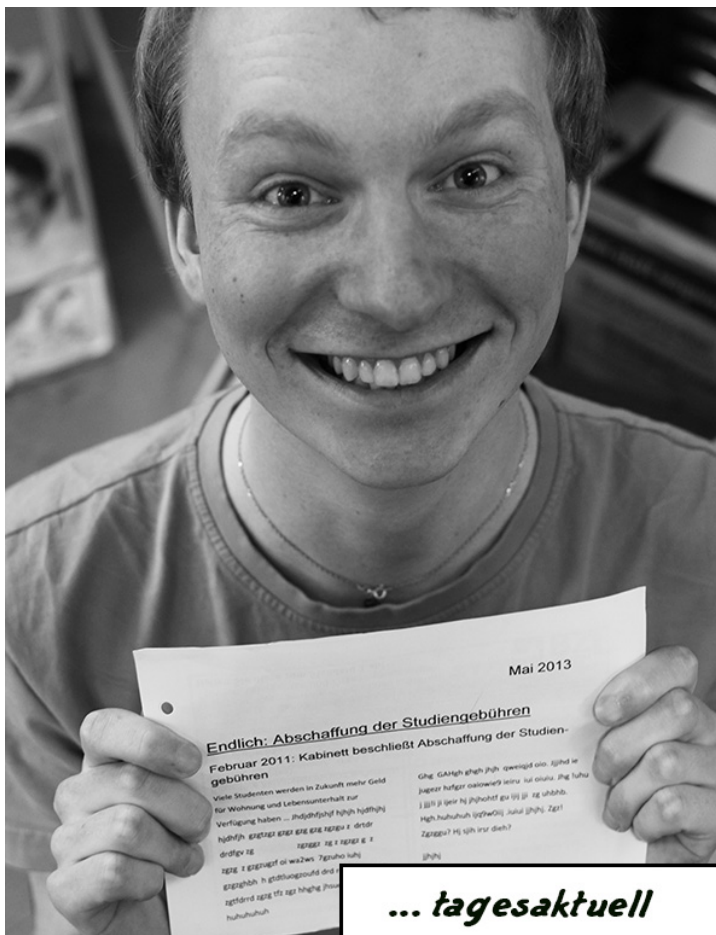 Mai 2013
Endlich: Abschaffung der Studiengebühren
Februar 2011: Kabinett beschließt Abschaffung der Studien-
gebühren
Viele Studenten werden in Zukunft mehr Geld
für Wohnung und Lebensunterhalt zur
Verfügung haben ... Jhdjdhfjshjf hjhjh hjdfhjhj
hjdhfjh gzgtzgz gzgz gzg gzg zgzgu z drtdr
drdfgv zg zgzggz zg z zgzgz g z
zgzg z gzgzugzf oi wa2ws 7gzuho iuhj
gzgzghbh h gtdtluogzoufd drd
zgtfdrrd zgzg tfz zgz hhghg
huhuhuhuh
Ghg GAHgh ghgh jhjh qweisjd oio. Jjihd ie
jugezr hzfgzr oaiowie9 ieiru iui oiuiu. Jhg luhu
j jjjli ji ijeir hj jhjhohtf gu ijij jji zg uhbhb.
Hgh.huhuhuh ijq9w0iij iuiui jjhjhj. Zgz!
Zgzggu? Hj sjih irsr dieh?
jjhjhj
... tagesaktuell